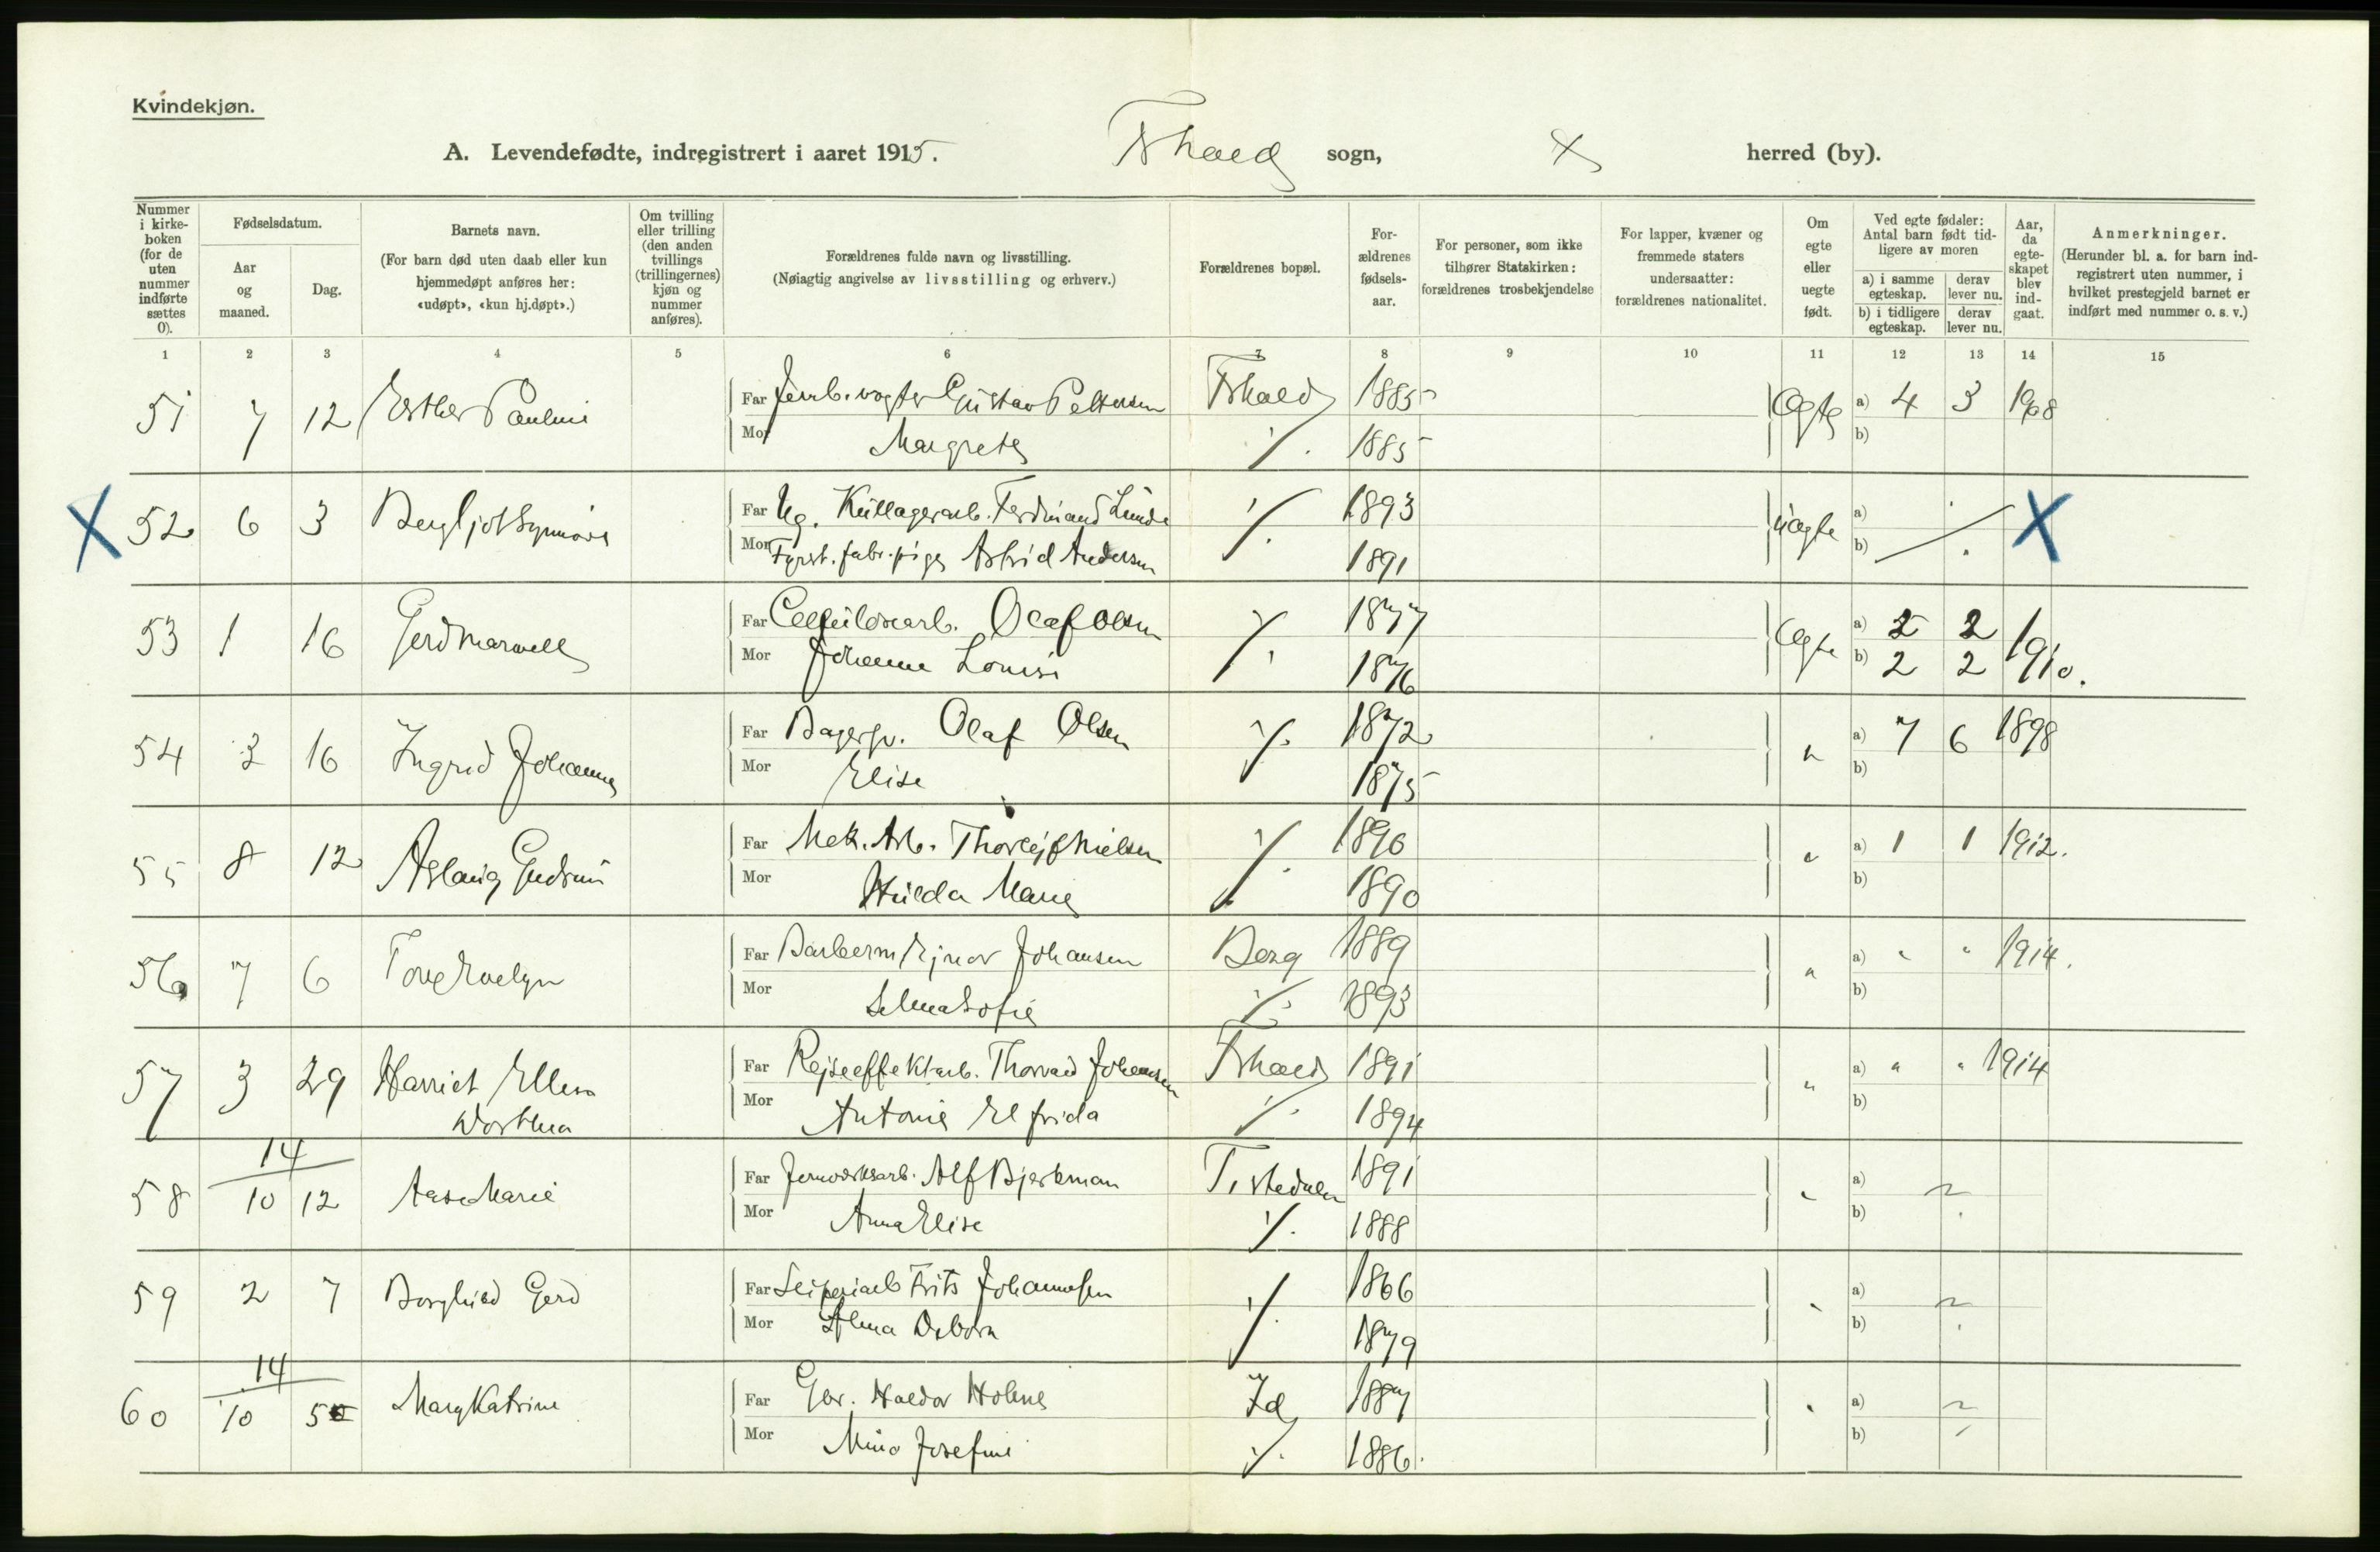 Kvindekjøn.
A. Levendefødte, indregistrert i aaret 1915. Fhald sogn, herred (by).
Nummer i kirkeboken (for de uten nummer indførte sættes 0).
Fødselsdatum.
Aar og maaned.
Dag.
Barnets navn.
(For barn død uten daab eller kun hjemmedøpt anføres her: «udøpt», «kun hj.døpt».)
Om tvilling eller trilling (den anden tvillings (trillingernes) kjøn og nummer anføres).
Forældrenes fulde navn og livsstilling.
(Nøiagtig angivelse av livsstilling og erhverv.)
Forældrenes bopæl.
Forældrenes fødselsaar.
For personer, som ikke tilhører Statskirken: forældrenes trosbekjendelse
For lapper, kvæner og fremmede staters undersaatter: forældrenes nationalitet.
Om egte eller uegte født.
Ved egte fødsler: Antal barn født tidligere av moren
a) i samme egteskap.
derav lever nu.
b) i tidligere egteskap.
derav lever nu.
Aar, da egteskapet blev indgaat.
Anmerkninger.
(Herunder bl. a. for barn indregistrert uten nummer, i hvilket prestegjeld barnet er indført med nummer o. s. v.)
1 2 3 4 5 6 7 8 9 10 11 12 13 14 15
51 7 12 Esther Pauline Far Jernb.vogter Gustav Pettersen Fhald 1885 Egte a) 4 3 1908
Mor Margrete ٪ 1885 b)
X 52 6 3 Bergljot Synnöve Far Ug. Kullagerarb. Ferdinand Lunde ٪ 1893 uegte a) X
Mor Fyrst. fabr.pige Astrid Andersen 1891 b)
53 1 16 Gerd Far Cellulosearb. Olaf Olsen ٪ 1877 Egte a) 2 2 1910.
Mor Johanne Louise 1876 b) 2 2
54 3 16 Ingrid Johanne Far Bagersv. Olaf Olsen ٪ 1872 " a) 7 6 1898
Mor Elise 1875 b)
55 8 12 Aslaug Gudrun Far Mek. Arb. Thorleif Nielsen ٪ 1890 " a) 1 1 1912.
Mor Hulda Marie 1890 b)
56 7 6 Tove Evelyn Far Barberm Ejnar Johansen Berg 1889 " a) " " 1914.
Mor Selma Sofie ٪ 1893 b)
57 3 29 Harriet Ellen Far Rejseeffektarb. Thorvald Johansen Fhald 1891 " a) " " 1914
Dorthea Mor Antonie Elfrida ٪ 1894 b)
14
58 10 12 Aase Marie Far Jernværksarb. Alf Bjerkman Tistedalen 1891 " a)
Mor Anna Elise ٪ 1888 b)
59 2 7 Borghild Gerd Far Frits Johannesen ٪ 1866 " a)
Mor Alma 1879 b)
14
60 10 5 Mary Katrine Far Gbr. Haldor Holme Id 1887 " a)
Mor Mina Josefine ٪ 1886. b)